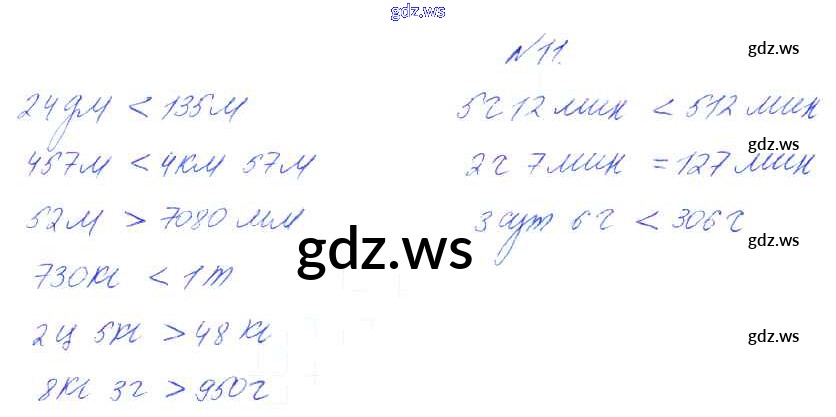 gdz.ws
№11.
gdz.ws
24 дм < 135 м
5 ч 12 мин < 512 мин
gdz.ws
457 м < 4 км 57 м
2 ч 7 мин = 127 мин
52 м > 7080 мм
3 сут 6 ч < 306 ч
gdz.ws
gdz.ws
730 кг < 1 т
2 ц 5 кг > 48 кг
gdz.ws
8 кг 3 г > 950 г
gdz.ws